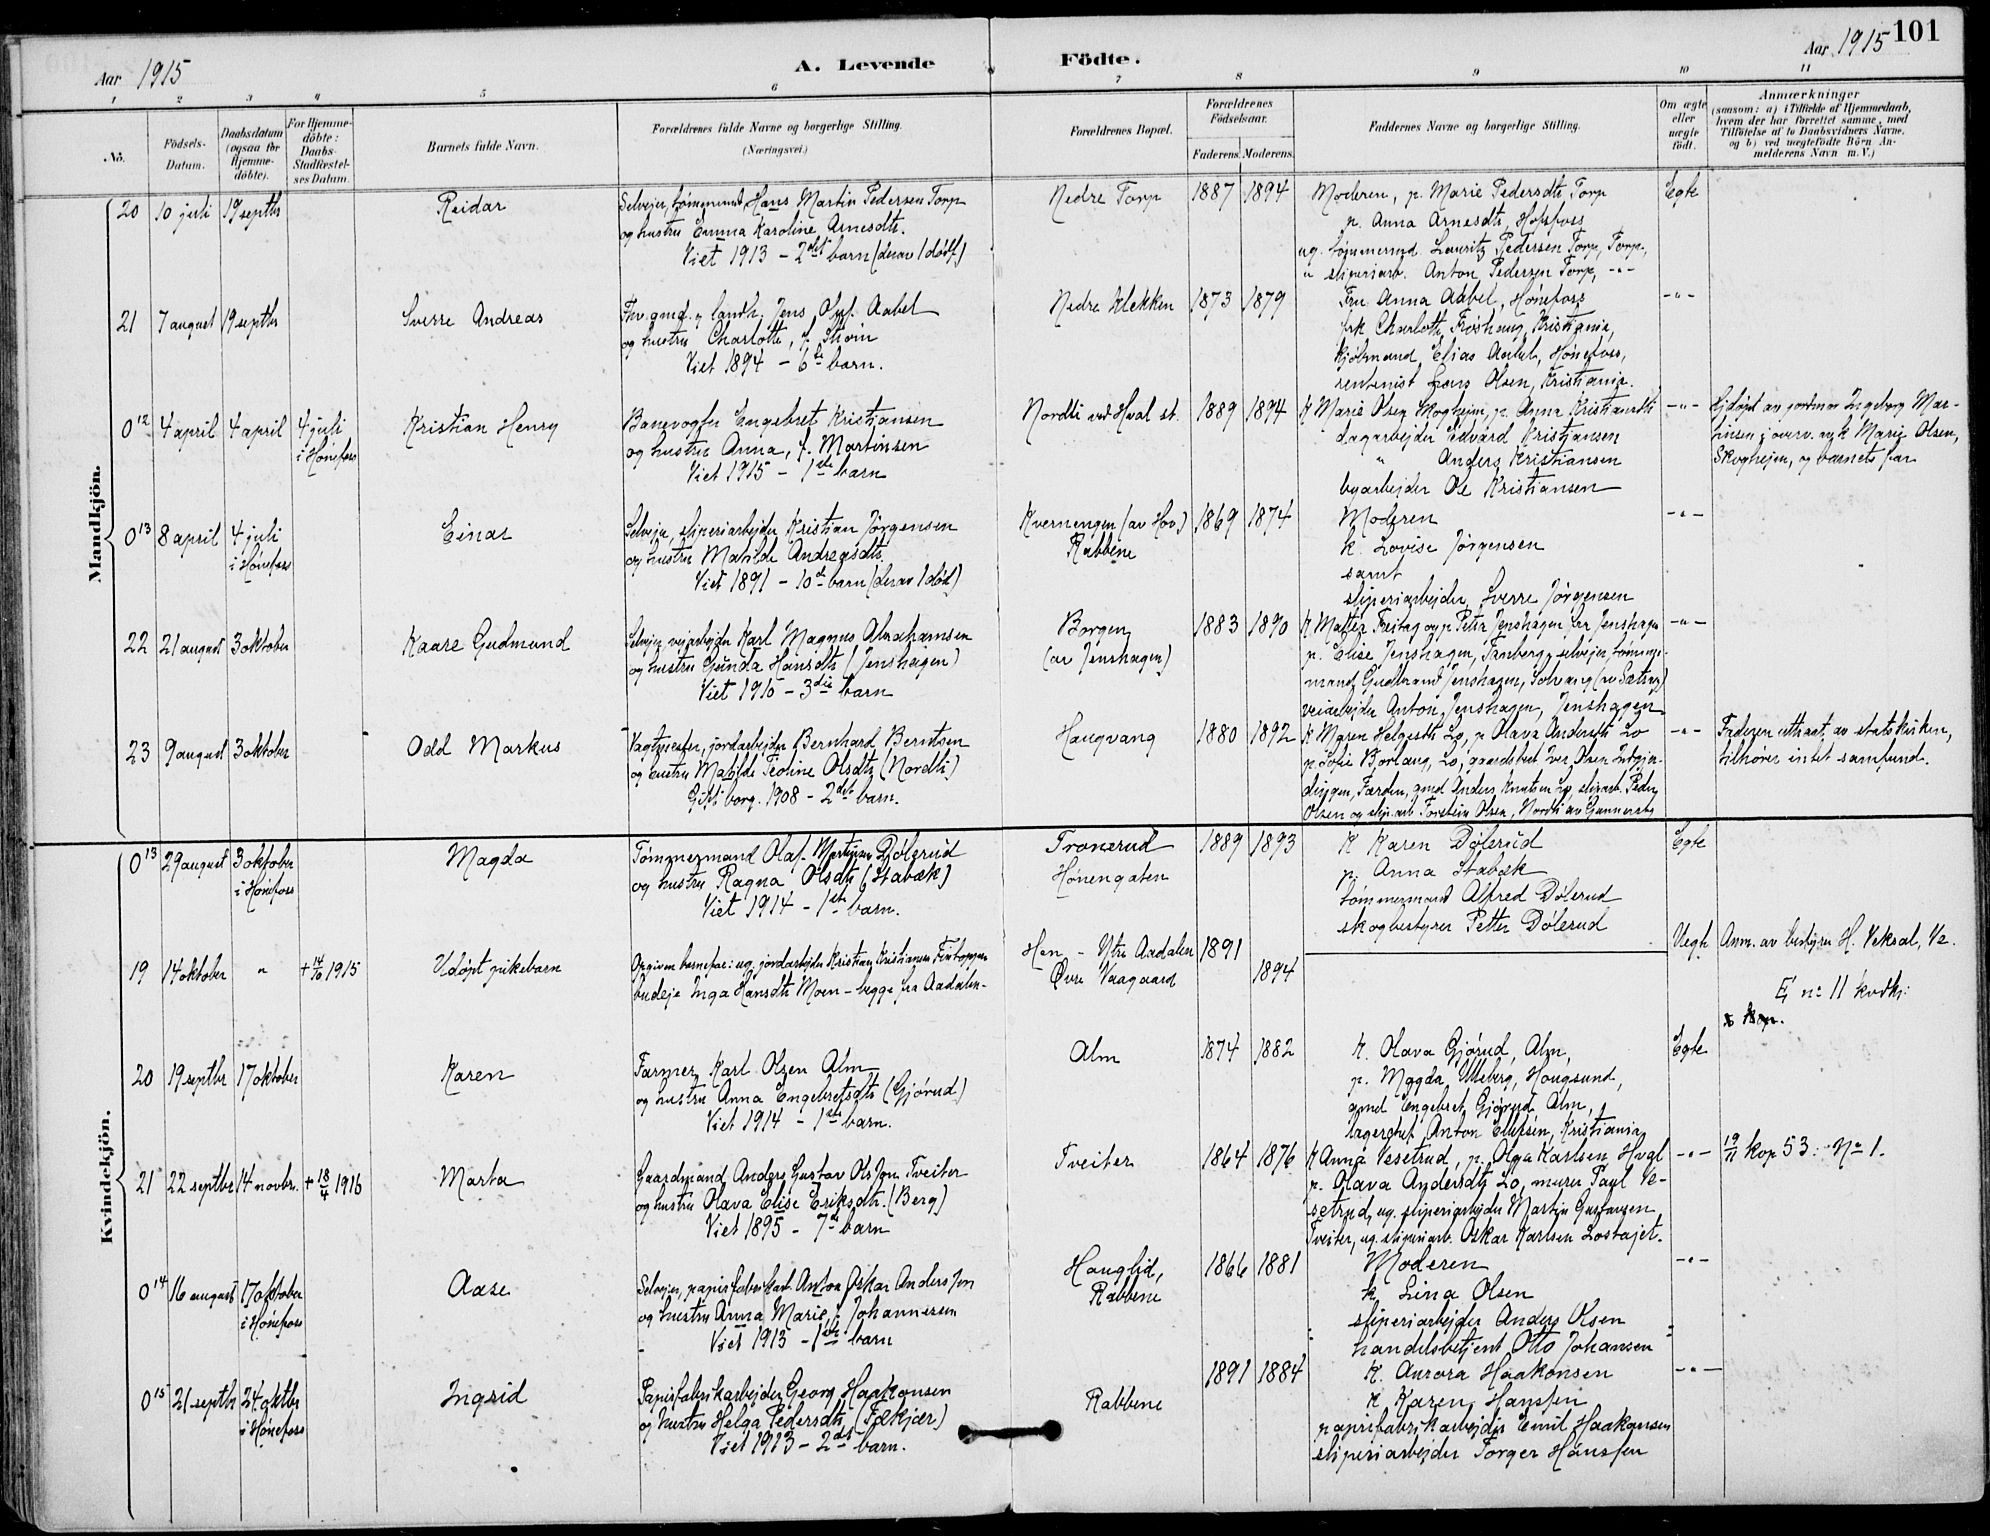 101
Aar 1915
A. Levende Födte.
Aar 1915
1 2 3 4 5 6 7 8 9 10 11
No.
Födsels-Datum.
Daabsdatum (ogsaa for Hjemme-döbte).
For Hjemme-döbte: Daabs-Stadfæstelses Datum.
Barnets fulde Navn.
Forældrenes fulde Navne og borgerlige Stilling.
(Næringsvei.)
Forældrenes Bopæl.
Forældrenes Födselsaar.
Faderens. Moderens.
Faddernes Navne og borgerlige Stilling.
Om ægte eller uægte födt.
Anmærkninger
(saasom: a) i Tilfælde af Hjemmedaab, hvem der har forrettet samme, med Tilföielse af to Daabsvidners Navne, og b) ved uægtefödte Börn Anmelderens Navn m. V.)
Mandkjön.
20 10 juli 19 septbr Reidar
Selveier, tømmermand Hans Martin Pedersen Torp
og hustru Emma Karoline Arnesdtr.
Viet 1913 - 2det barn (derav 1 dødf.)
Nedre Torp 1887 1894
Moderen, p. Marie Pedersdtr Torp
p. Anna Arnesdtr, Hofsfoss
ug. tømmermd. Lauritz Pedersen Torp, Torp,
" sliperiarb. Anton Pedersen Torp, -"-
Egte
21 7 august 19 septbr Sverre Andreas
Fhv. gmd. og landh. Jens Aabel
og hustru Charlotte, f.
Viet 1894 - 6te barn.
Nedre Klekken 1873 1879
Fru Anna Aabel, Hønefoss
frk Charlotte Frøshaug, Kristiania,
kjøbmand Elias Aabel, Hønefoss,
rentenist Lars Olsen, Kristiania.
-"-
0 12 4 april 4 april 4 juli i Hønefoss Kristian Henry
Banevogter Engebret Kristiansen
og hustru Anna, f. Martinsen
Viet 1915 - 1ste barn
Nordli ved Hval st. 1889 1894
K Marie Olsen Skogheim, p. Anna Kristiansdtr
dagarbejder Edvard Kristiansen
" Anders Kristiansen
byarbejder Ole Kristiansen
-"-
Hjdøpt av jordmor Ingeborg Mar-
tinsen i overv. av k Marie Olsen,
Skoghejm, og barnets far
0 13 8 april 4 juli i Hønefoss Einar
Selveier, sliperiarbejder Kristian Jørgensen
og hustru Matilde Andreasdtr
Viet 1891 - 10de barn (derav 1 død)
Kvernengen (av Hov) Rabbene 1869 1874
Moderen
k. Lovise Jørgensen
samt
sliperiarbejder Sverre Jørgensen
-"-
22 21 august 3 oktober Kaare Gudmund
Selveier, veiarbejder Karl Magnus Abrahamsen
og hustru Gunda Hansdtr (Jenshagen)
Viet 1910 - 3die barn
Borgen (av Jenshagen) 1883 1890
p. Elise Jenshagen, Tanberg, selveier, tømmer-
mand Gudbrand Jenshagen, Solvang (av Sætrang)
veiarbejder Anton Jenshagen, Jenshagen
-"-
23 9 august 3 oktober Odd Markus
Vagtmester, jordarbejder Bernhard Berntsen
og hustru Matilde Teoline Olsdtr (Nordli)
Gift borg. 1908 - 2det barn.
Haugvang 1880 1892
K Maren Helgesdtr Lo, p Olava Andersdtr Lo
p. Sofie Borlaug, Lo, gaardsbest Iver Olsen
Færden, gmd Anders Knutsen Lo, sliparb. Peder
Olsen og slip.arb Torstein Olsen, Nordli av Gunnersby
-"-
Faderen uttraat av statskirken,
tilhører intet samfund.
Kvindekjön.
0 13 29 august 3 oktober i Hønefoss Magda
Tømmermand Olaf Martinsen Dølerud
og hustru Ragna Olsdtr (Stabæk)
Viet 1914 - 1ste barn.
Tronerud Hønengaten 1889 1893
K Karen Dølerud
p. Anna Stabæk
tømmermand Alfred Dølerud
skogbestyrer Petter Dølerud
Egte
19 14 oktober " + 14/10 1915 Udøpt pikebarn
Opgiven barnefar: ug. jordarbejder Kristian Kristiansen
budeje Inga Hansdtr Moen - begge fra Aadalen -
Hen - Ytre Aadalen 1891
Øvre Vaagaard 1894
Uegte
Anm. av bestyrer H. Veksal, Ve.
E, no 11 kvdkj:
20 19 septbr 17 oktober Karen
Farmer Karl Olsen Alm
og hustru Anna Engebretsdtr (Gjørud)
Viet 1914 - 1ste barn.
Alm 1874 1882
K. Olava Gjørud, Alm,
p. Magda Ulleberg, Hougsund,
gmd Engebret Gjørud, Alm,
lagerchef Anton Ellefsen, Kristiania
Egte
21 22 septbr 14 novbr. + 18/4 1916 Marta
Gaardmand Anders Gustav Olsson Tveiter
og hustru Olava Elise Eriksdtr. (Berg)
Viet 1895 - 7de barn
Tveiter 1864 1876
K Anna Vesetrud, p. Olga Karlsen Hval
p. Olava Andersdtr Lo, murer Paul Ve-
setrud, ug. sliperiarbejder Martin Gustavsen
Tveiter, ug. sliperiarb. Oskar Karlsen Lostajet.
-"-
19/11 kop 53: No 1.
0 14 16 august 17 oktober i Hønefoss Aase
Selveier, papirfabrikarb. Anton Oskar Anderssen
og hustru Anna Marie f. Johannesen
Viet 1913 - 1ste barn
Hauglid, Rabbene 1866 1881
Moderen
k Lina Olsen
sliperiarbejder Anders Olsen
handelsbetjent Otto Johansen
-"-
0 15 21 septbr 24 oktbr i Hønefoss Ingrid
Papirfabrikarbejder Georg Haakonsen
og hustru Helga Pedersdtr (Fækjær)
Viet 1913 - 2det barn.
Rabbene 1891 1884
K. Aurora Haakonsen
K Karen Hanssen
papirfabrikarbejder Emil Haakonsen
sliperiarbejder Torger Hanssen
-"-